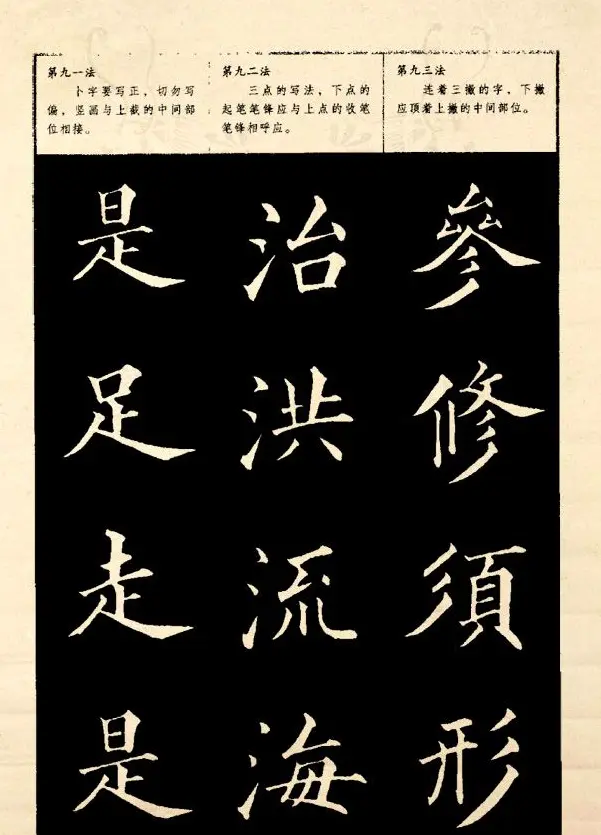 第九一法
卜字要写正，切勿写
偏，竖画与上截的中间部
位相接。
第九二法
三点的写法，下点的
起笔笔锋应与上点的收笔
笔锋相呼应。
第九三法
连着三撇的字，下撇
应顶着上撇的中间部位。
是 治 參
足 洪 修
走 流 須
是 海 形